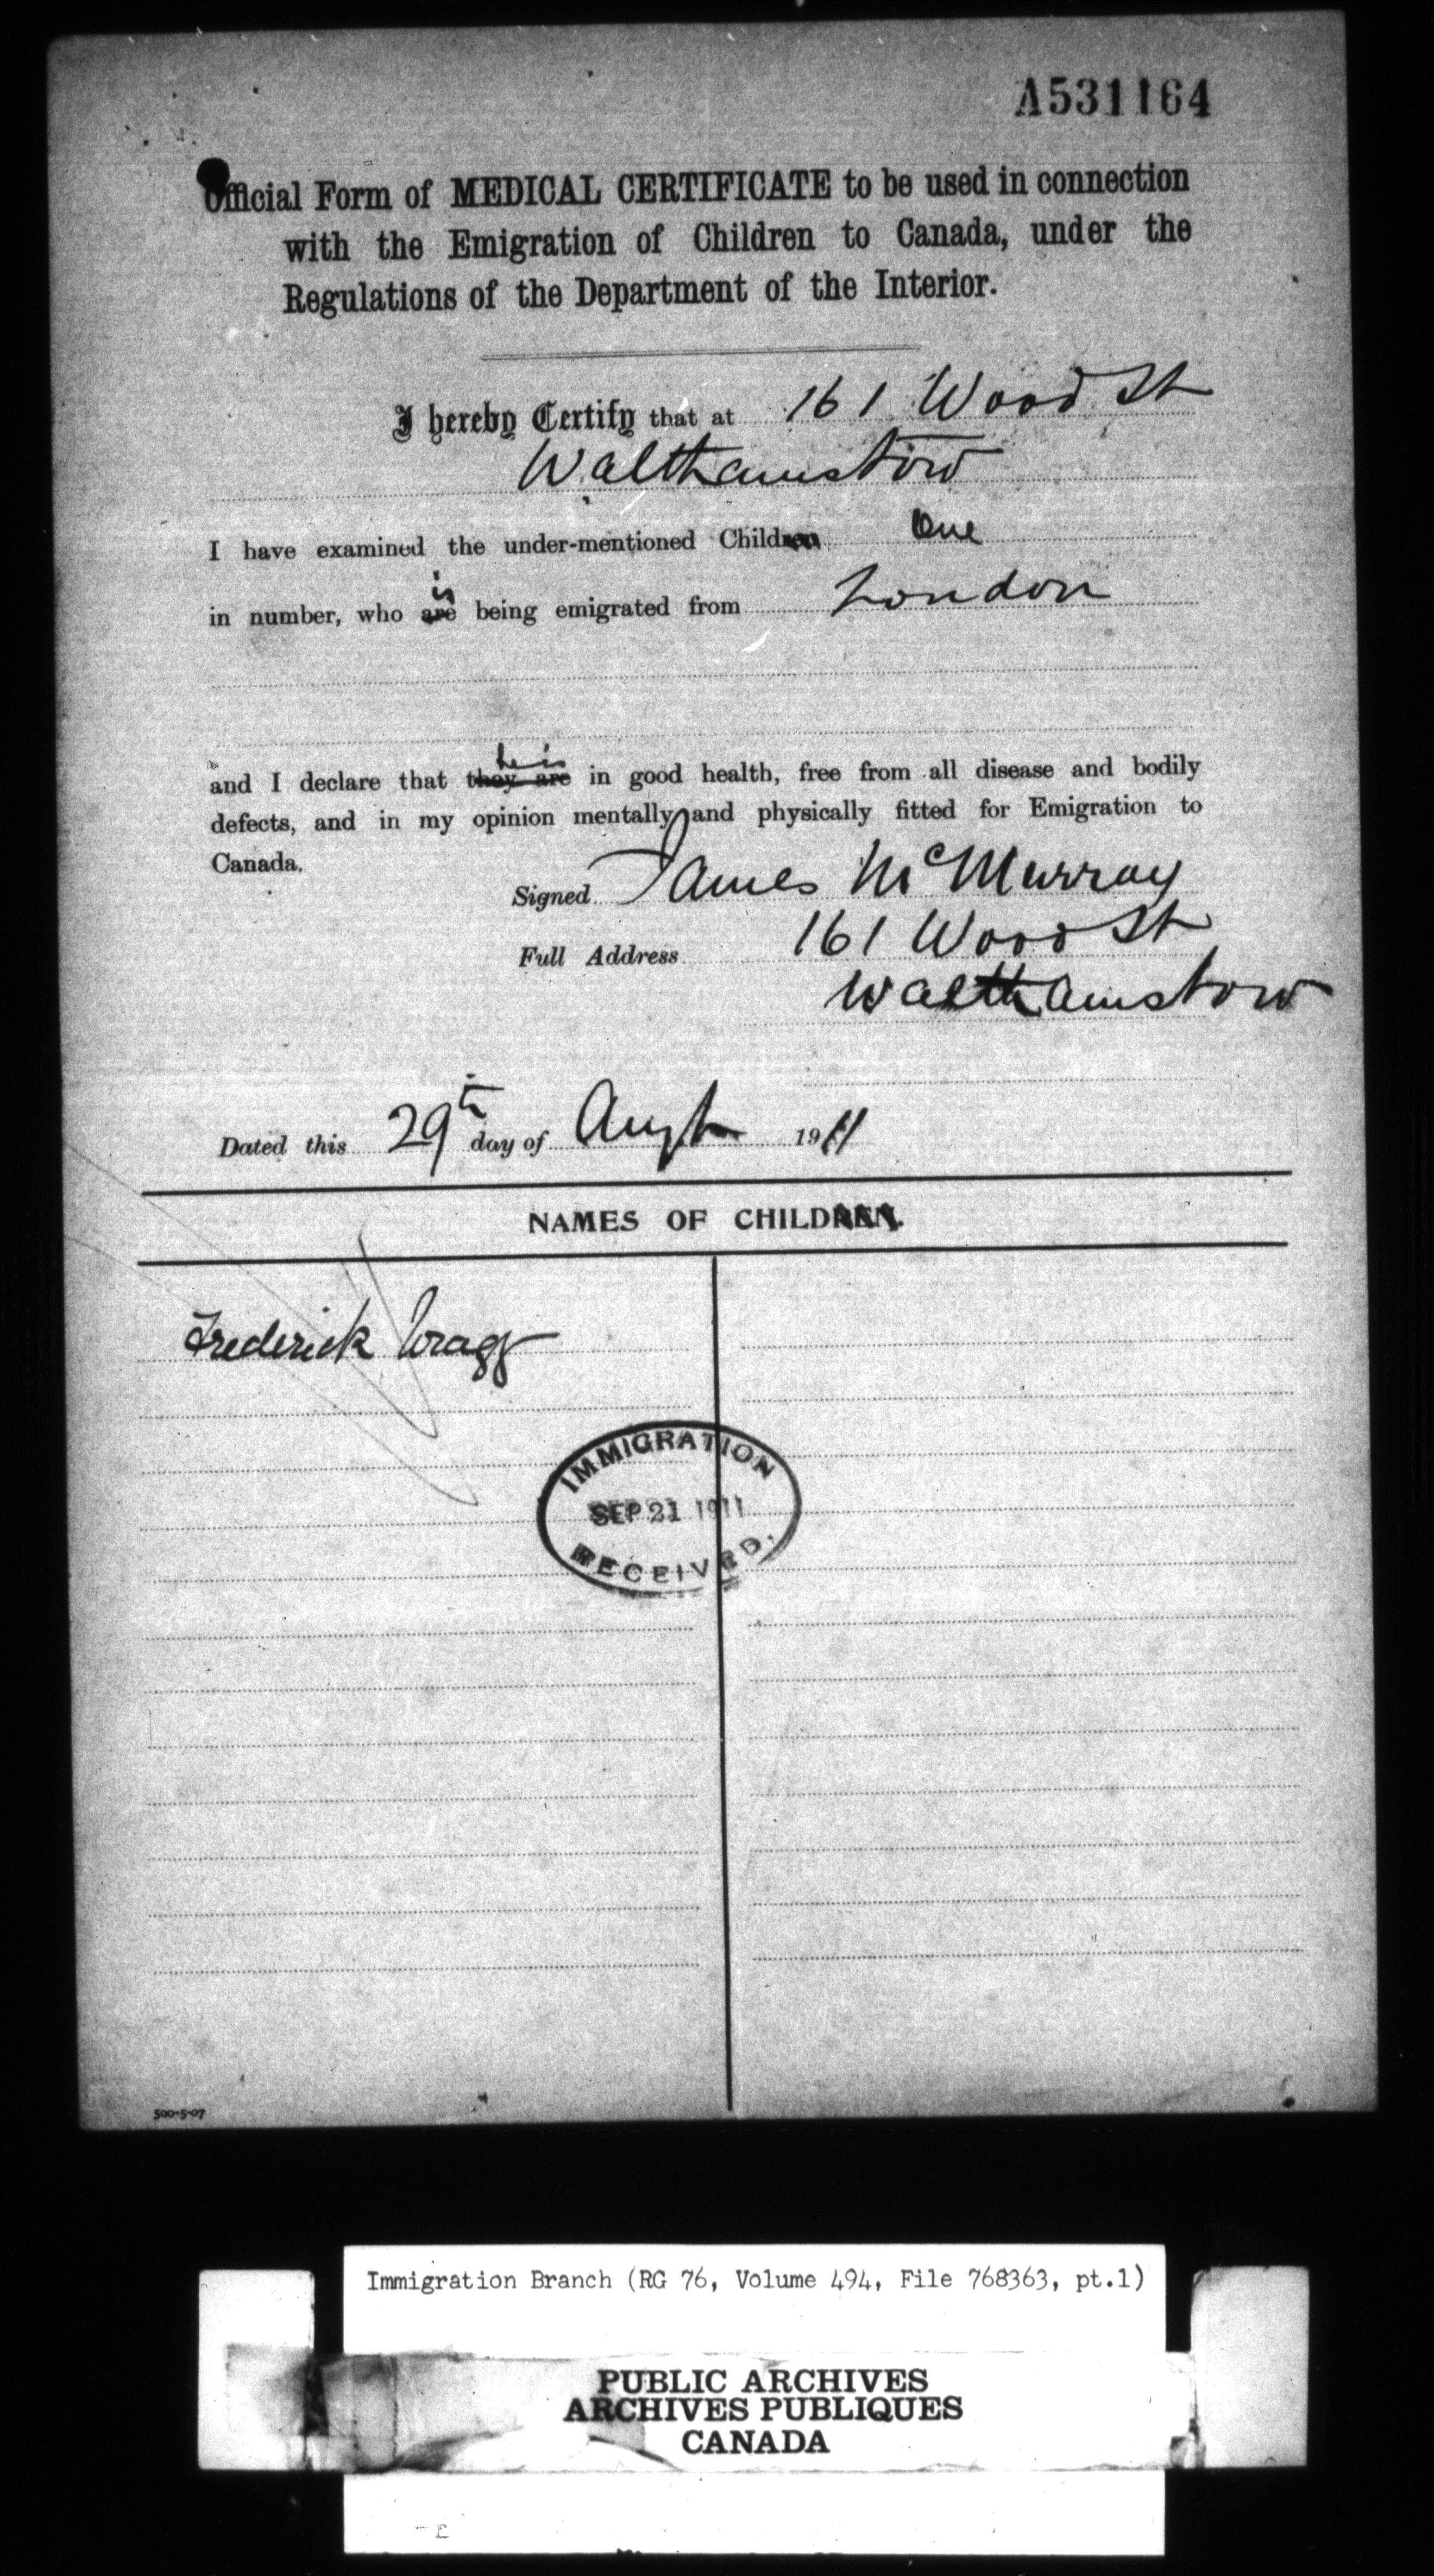 A531164
Official Form of MEDICAL CERTIFICATE to be used in connection
with the Emigration of Children to Canada, under the
Regulations of the Department of the Interior.
I hereby Certify that at 161 Wood St
Walthamstow
I have examined the under-mentioned Children One
is
in number, who are being emigrated from London
he is
and I declare that they are in good health, free from all disease and bodily
defects, and in my opinion mentally and physically fitted for Emigration to
Canada.
Signed James McMurray
Full Address 161 Wood St
Walthamstow
Dated this 29th day of Augt 1911
NAMES OF CHILDREN.
Frederick Wragg
IMMIGRATION
SEP 21 1911
RECEIVED.
500-5-07
Immigration Branch (RG 76, Volume 494, File 768363, pt.1)
PUBLIC ARCHIVES
ARCHIVES PUBLIQUES
CANADA